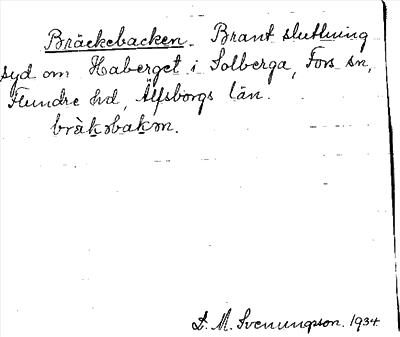 Bräckebacken. Brant sluttning
syd om Haberget i Solberga, Fors sn,
Flundre hd, Älfsborgs län.
bràkəbakən.
L. M. Svenungsson. 1934